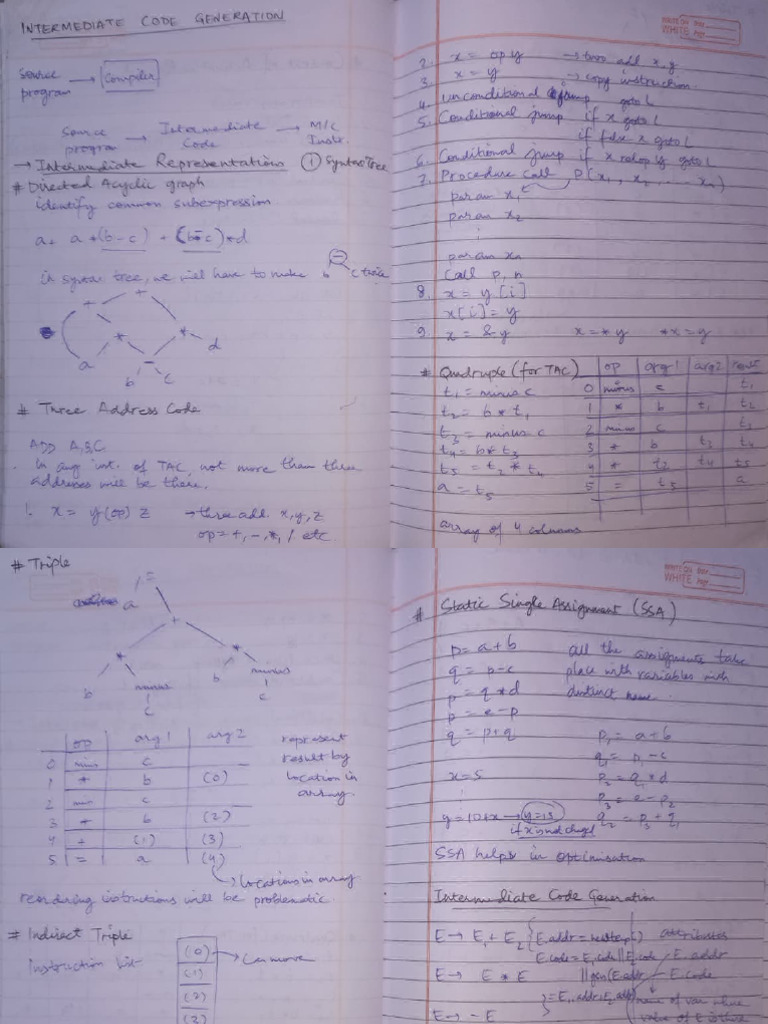 INTERMEDIATE CODE GENERATION
Source program → Compiler
Source program → Intermediate Code → M/C Instr.
→ Intermediate Representations ① Syntax Tree
# Directed Acyclic graph
identify common subexpression
a + a * (b - c) + (b - c) * d
In syntax tree, we will have to make b - c twice
+ +
* *
a - d
b c
# Three Address Code
ADD A,B,C
In any int. of TAC, not more than three
addresses will be there.
1. x = y (op) z → three add x, y, z
op = +, -, *, / etc
2. x = op y → two add x, y
3. x = y → copy instruction
4. Unconditional jump goto L
5. Conditional jump if x goto L
if false x goto L
6. Conditional jump if x relop y goto L
7. Procedure call P(x1, x2, .... xn)
param x1
param x2
⋮
param xn
call p, n
8. x = y [i]
x[i] = y
9. x = &y x = *y *x = y
# Quadruple (for TAC)
t1 = minus c
t2 = b * t1
t3 = minus c
t4 = b * t3
t5 = t2 * t4
a = t5
op arg1 arg2 result
0 minus c t1
1 * b t1 t2
2 minus c t3
3 * b t3 t4
4 + t2 t4 t5
5 = t5 a
array of 4 columns
# Triple
=
a
+
* *
b minus b minus
c c
op arg1 arg2
0 min c
1 * b (0)
2 min c
3 * b (2)
4 + (1) (3)
5 = a (4)
represent
result by
location in
array
→ Locations in array
reordering instructions will be problematic.
# Indirect Triple
Instruction list
(0) → Can move
(1)
(2)
(3)
# Static Single Assignment (SSA)
p = a + b
q = p - c
p = q * d
p = e - p
q = p + q
all the assignments take
place with variables with
distinct name.
p1 = a + b
q1 = p1 - c
p2 = q1 * d
p3 = e - p2
q2 = p3 + q1
x = 5
y = 10 + x → y = 15
if x is not changed
SSA helps in optimisation
Intermediate Code Generation
E → E1 + E2 { E.addr = newtemp() attributes
E.code = E1.code || E2.code E.addr
E → E * E || gen(E.addr E.code
= E1.addr + E2.addr) name of var where
E → - E value of E is there